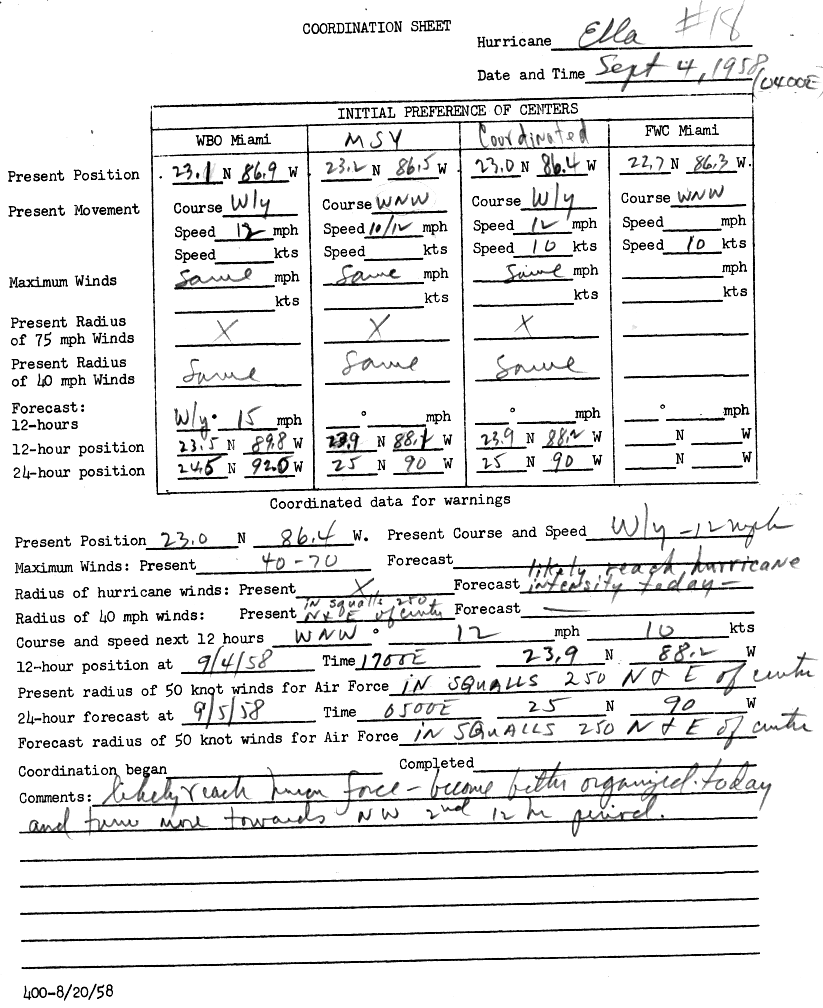 COORDINATION SHEET
Hurricane Ella #18
Date and Time Sept 4, 1958 (0400E)
INITIAL PREFERENCE OF CENTERS
WBO Miami MSY Coordinated FWC Miami
Present Position 23.1 N 86.9 W 23.2 N 86.5 W 23.0 N 86.4 W 22.7 N 86.3 W.
Present Movement Course W/y Course WNW Course W/y Course WNW
Speed 12 mph Speed 10/12 mph Speed 12 mph Speed mph
Speed kts Speed kts Speed 10 kts Speed 10 kts
Maximum Winds Same mph Same mph Same mph mph
kts kts kts kts
Present Radius
of 75 mph Winds X X X
Present Radius
of 40 mph Winds Same Same Same
Forecast:
12-hours W/y. 15 mph ° mph ° mph ° mph
12-hour position 23.5 N 89.8 W 23.9 N 88.1 W 23.9 N 88.2 W N W
24-hour position 24.5 N 92.0 W 25 N 90 W 25 N 90 W N W
Coordinated data for warnings
Present Position 23.0 N 86.4 W. Present Course and Speed W/y - 12 mph
Maximum Winds: Present 40-70 Forecast likely reach hurricane
Radius of hurricane winds: Present X Forecast intensity today -
Radius of 40 mph winds: Present in squalls 250 N & E of centre Forecast —
Course and speed next 12 hours WNW ° 12 mph 10 kts
12-hour position at 9/4/58 Time 1700E 23.9 N 88.2 W
Present radius of 50 knot winds for Air Force IN SQUALLS 250 N & E of centre
24-hour forecast at 9/5/58 Time 0500E 25 N 90 W
Forecast radius of 50 knot winds for Air Force IN SQUALLS 250 N & E of centre
Coordination began Completed
Comments: likely reach force - become better organized today
and turn more towards NW 2nd 12 hr period.
400-8/20/58